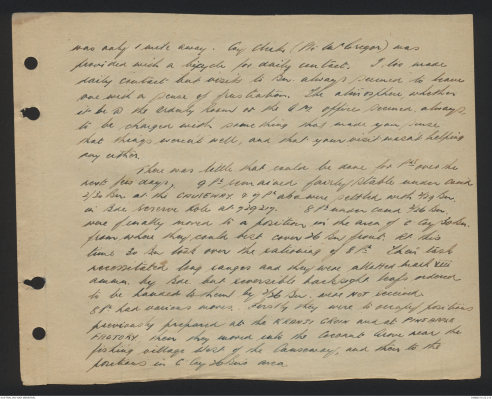 was only 1 mile away. Coy Clerk (Pte McGregor) was
provided with a bicycle for daily contact. I too made
daily contact but visits to Bn. always seemed to leave
one with a sense of frustration. The atmosphere whether
it be in the orderly Room or the Q.M. office seemed always
to be charged with something that made you sense
that things weren't well, and that your visit wasn't helping
any either.
There was little that could be done for Pls over the
next few days, 9 Pl. remained fairly stable under comd
2/30 Bn. at the CAUSEWAY
in Bde reserve role at
were finally moved to a position in the area of C Coy 30 Bn.
from where they could best cover 26 Bn front. At this
time 30 Bn took over the rationing of 8 Pl. Their task
necessitated long ranges and they were allotted mark VIII
ammn. by Bde but reversible backsight leafs ordered
to be handed to them by 2/26 Bn. were NOT received.
8 Pl had various moves. Firstly they were to occupy positions
previously prepared at the KRANJI and at PINEAPPLE
FACTORY then they moved into the Coconut Grove near the
fishing village West of the Causeway, and then to the
positions in C Coy 26 Bns area.